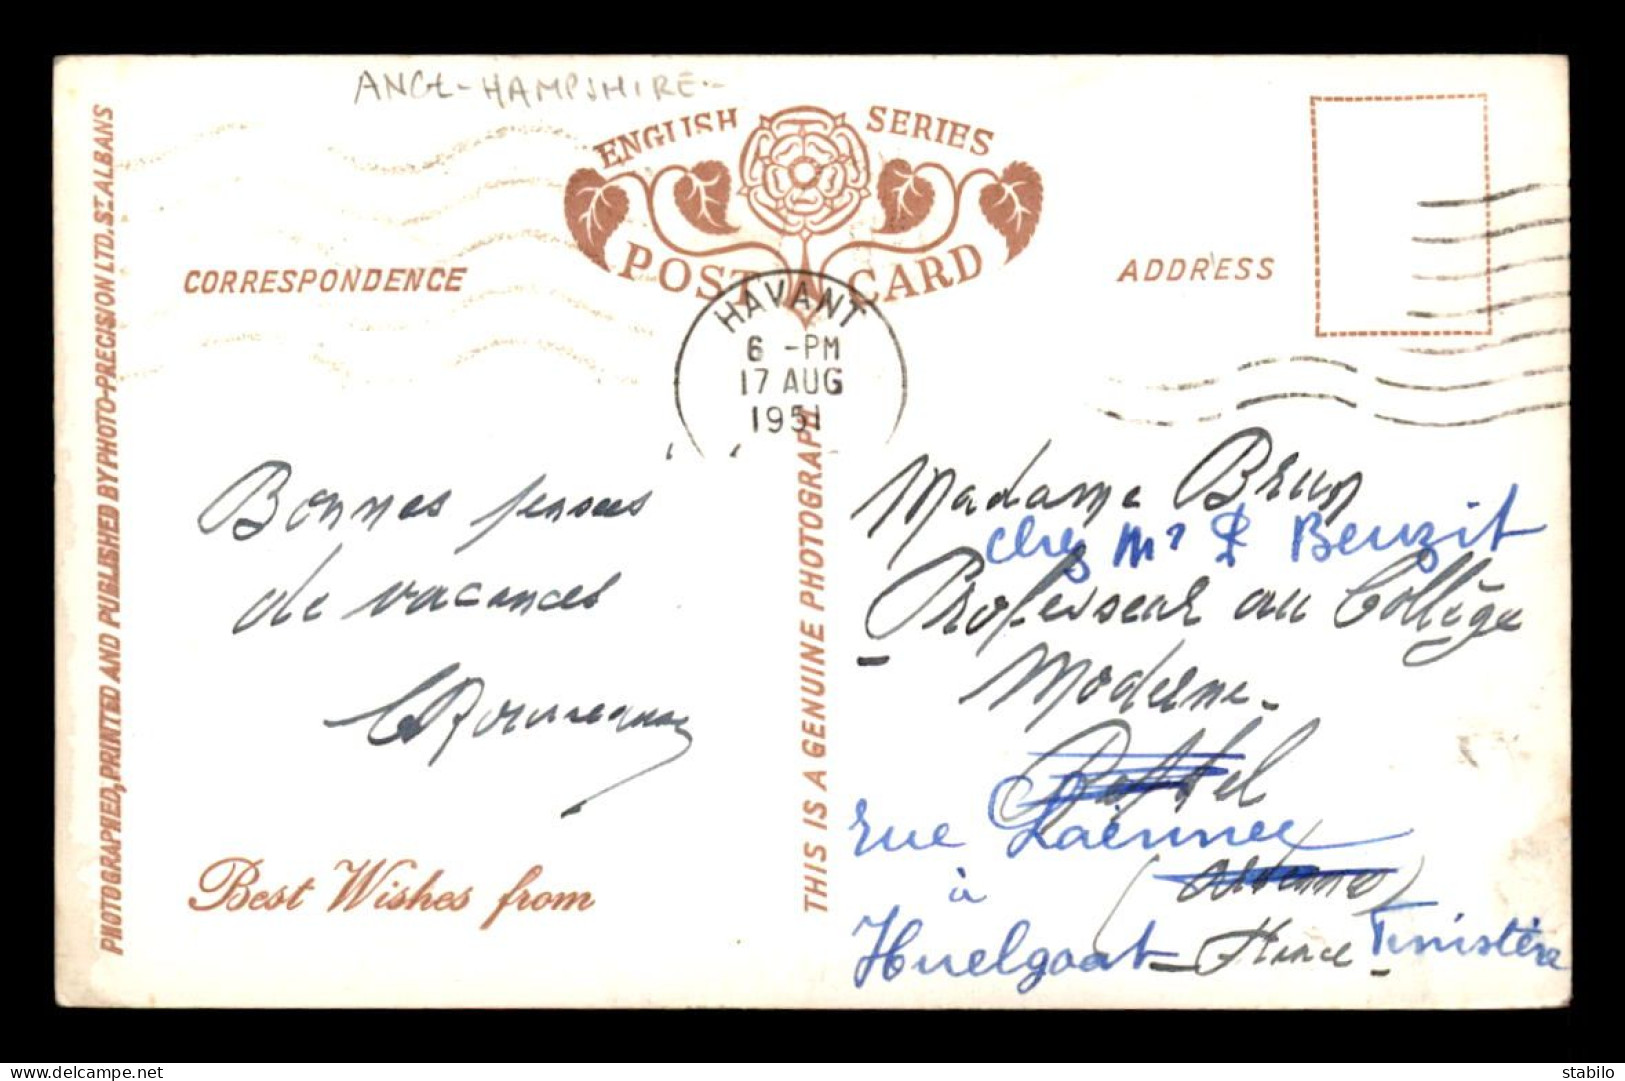 ANGL-HAMPSHIRE.-
ENGLISH SERIES
POST CARD
CORRESPONDENCE
ADDRESS
HAVANT
6 -PM
17 AUG
1951
PHOTOGRAPHED, PRINTED AND PUBLISHED BY PHOTO-PRECISION LTD. ST. ALBANS
Bonnes pensées
de vacances
Best Wishes from
THIS IS A GENUINE PHOTOGRAPH
Madame Brun
chez Mr P Beuzit
Professeur au Collège
Moderne-
Rethel
rue Laënnec
à
(Ardennes)
Huelgoat - France - Finistère
www.delcampe.net
stabilo